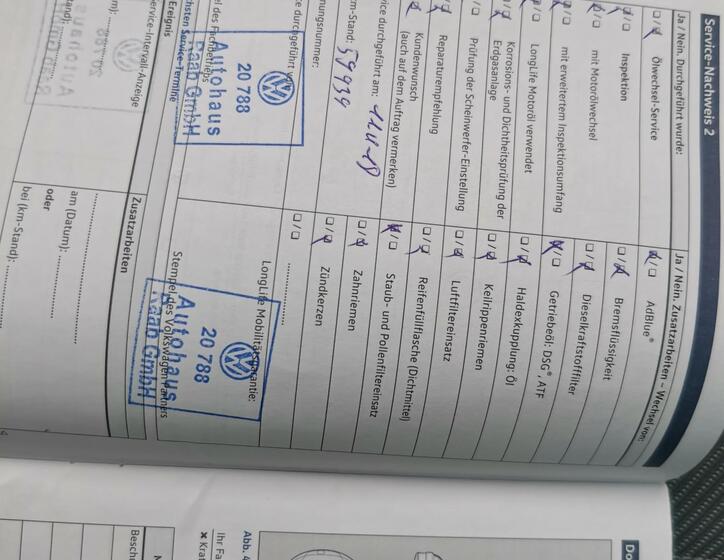 Service-Nachweis 2
Ja / Nein. Durchgeführt wurde:
Ölwechsel-Service
Inspektion
mit Motorölwechsel
mit erweitertem Inspektionsumfang
LongLife Motoröl verwendet
Korrosions- und Dichtheitsprüfung der
Erdgasanlage
Prüfung der Scheinwerfer-Einstellung
Reparaturempfehlung
Kundenwunsch
(auch auf dem Auftrag vermerken)
durchgeführt am:
59939
nungsnummer:
durchgeführt
VW
20 788
Autohaus
Raab GmbH
Ereignis
Service-Termine
ervice-Intervall-Anzeige
Ja / Nein. Zusatzarbeiten – Wechsel von:
AdBlue®
Bremsflüssigkeit
Dieselkraftstofffilter
Getriebeöl: DSG®, ATF
Haldexkupplung: Öl
Keilrippenriemen
Luftfiltereinsatz
Reifenfüllflasche (Dichtmittel)
Staub- und Pollenfiltereinsatz
Zahnriemen
Zündkerzen
LongLife Mobilitätsgarantie:
VW
20 788
Autohaus
Raab GmbH
Stempel des Volkswagen Partners
Zusatzarbeiten
am (Datum):
oder
bei (km-Stand):
Abb. 4
Ihr Fa
Kraf
Besch